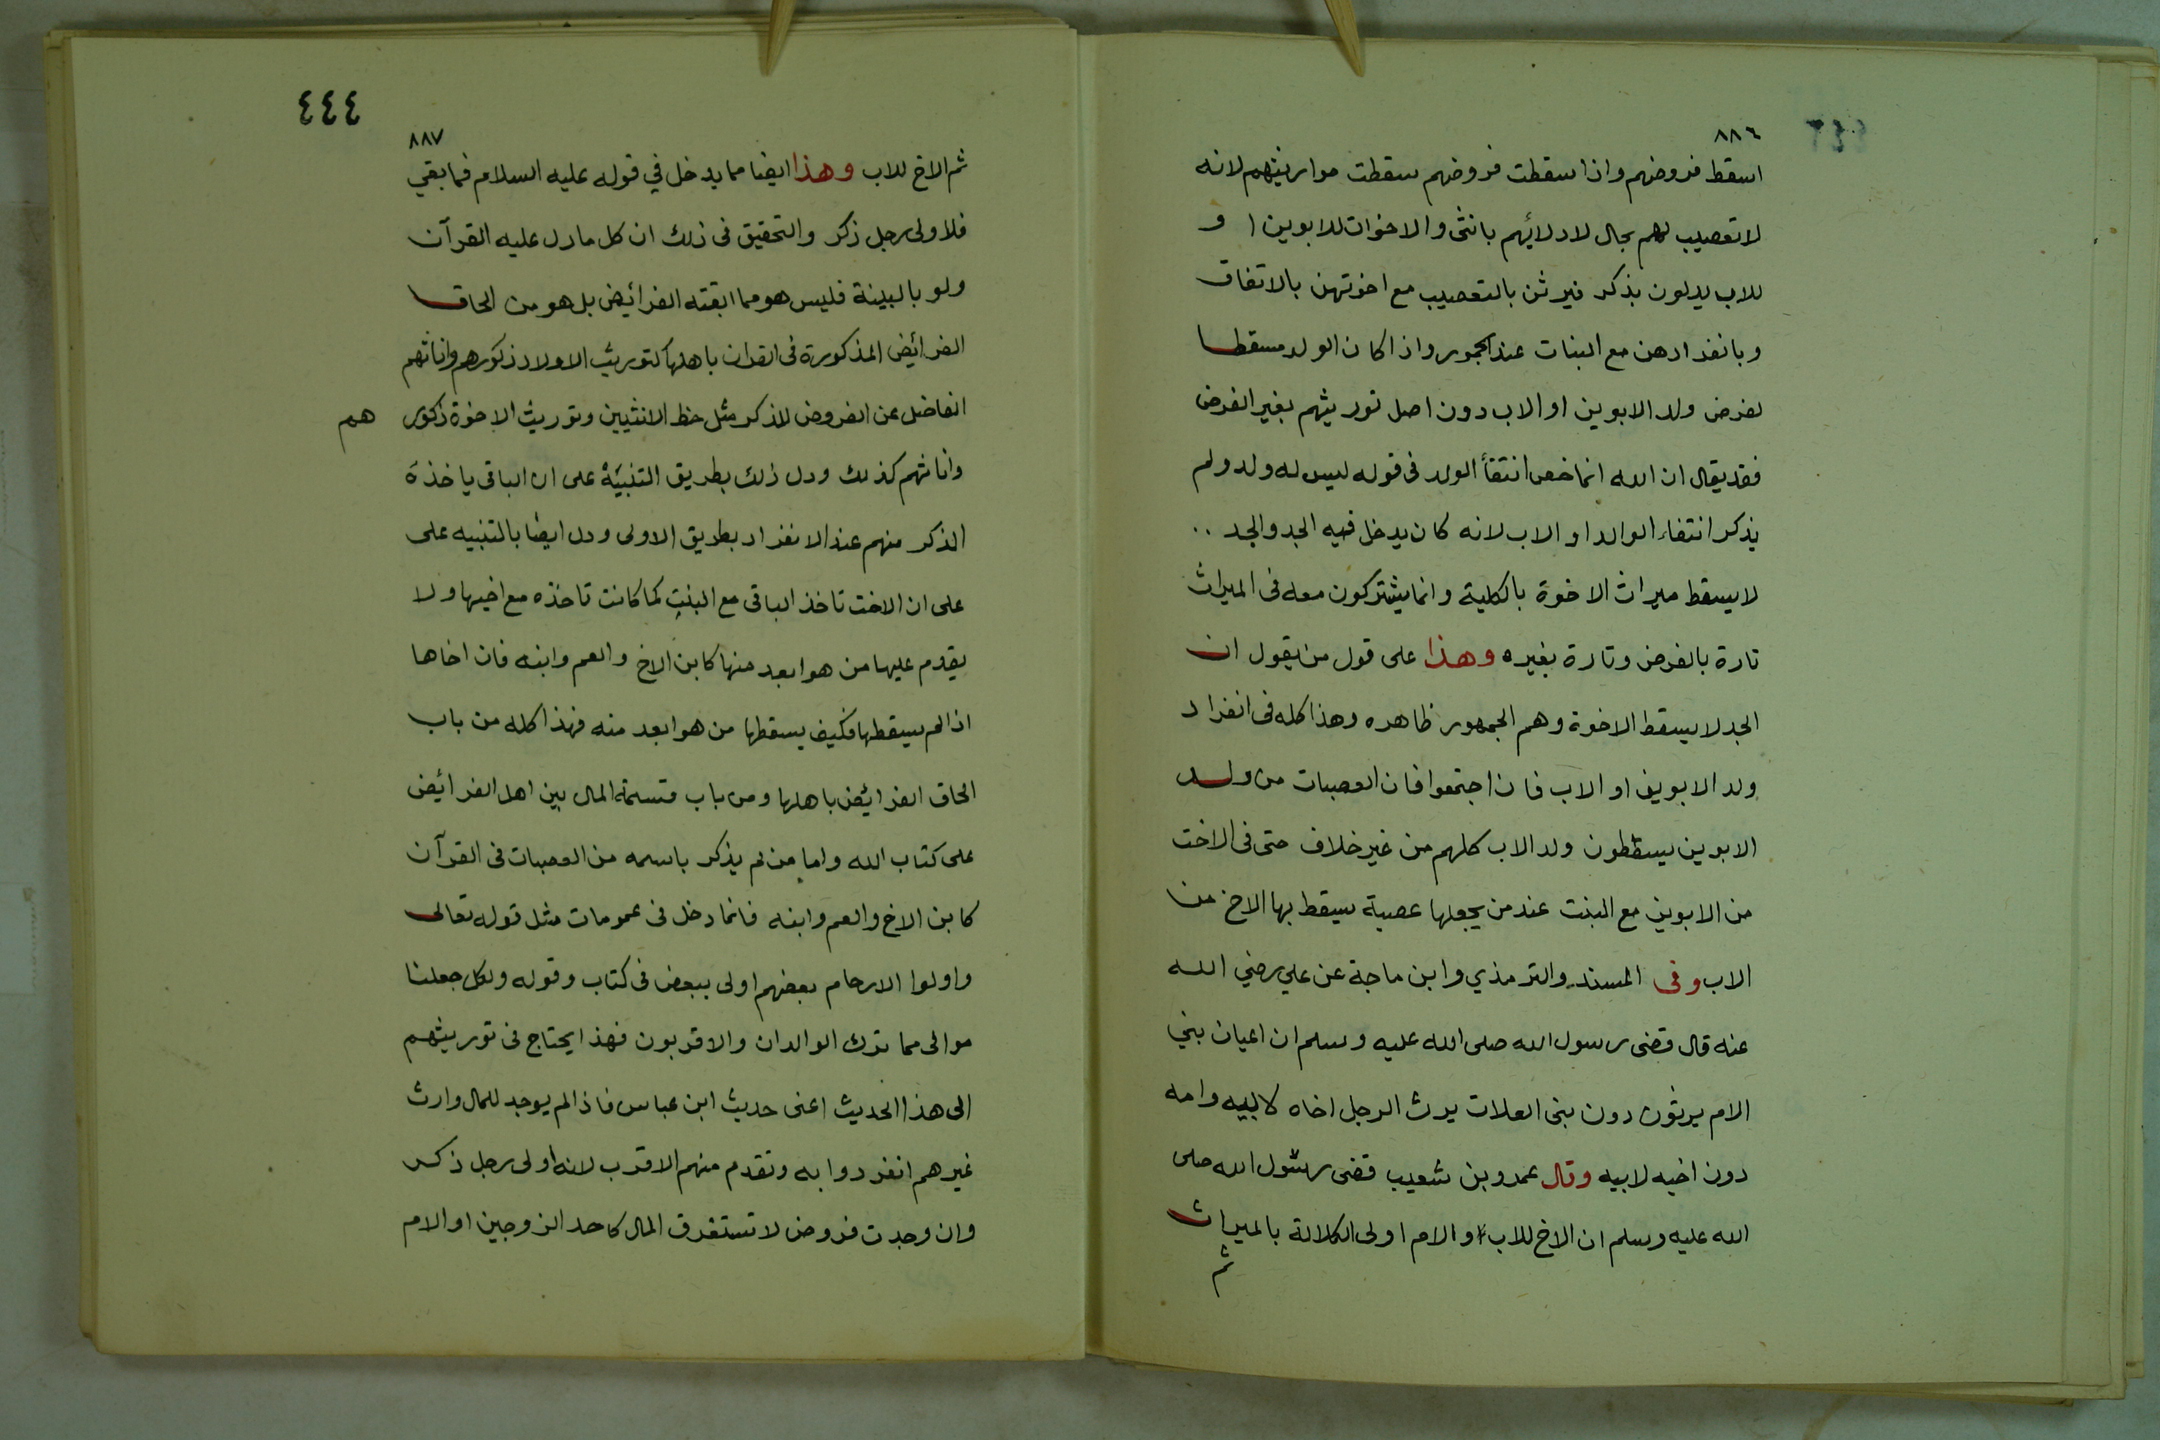 ٨٨٦
اسقط فروضهم واذا سقطت فروضهم سقطت مواريثهم لانه
لا تعصيب لهم بحال لادلائهم بانثى والاخوات للابوين ا و
للاب يدلون بذكر فيرثن بالتعصيب مع اخوتهن بالاتفاق
وبانفرادهن مع البنات عند الجمهور واذا كان الولد مسقطا
لفرض ولد الابوين او الاب دون اصل توريثهم بغير الفرض
فقد يقال ان الله انما خص انتفأ الولد فى قوله ليس له ولد ولم
يذكر انتفاء الوالد او الاب لانه كان يدخل فيه الجد والجد ..
لا يسقط ميراث الاخوة بالكلية وانما يشتركون معه فى الميراث
تارة بالفرض وتارة بغيره وهذا على قول من يقول ان
الجد لا يسقط الاخوة وهم الجمهور ظاهره وهذا كله فى انفراد
ولد الابوين او الاب فان اجتمعوا فان العصبات من ولد
الابوين يسقطون ولد الاب كلهم من غير خلاف حتى فى الاخت
من الابوين مع البنت عند من يجعلها عصبة يسقط بها الاخ من
الاب وفى المسند والترمذي وابن ماجة عن علي رضي الله
عنه قال قضى رسول الله صلى الله عليه وسلم ان اعيان بني
الام يرثون دون بنى العلات يرث الرجل اخاه لابيه وامه
دون اخيه لابيه وقال عمرو بن شعيب قضى رسول الله صلى
الله عليه وسلم ان الاخ للاب والام اولى الكلالة بالميراث
ثم
٤٤٤
٨٨٧
ثم الاخ للاب وهذا ايضا مما يدخل في قوله عليه السلام فما بقي
فلاولى رجل ذكر والتحقيق فى ذلك ان كل ما دل عليه القرآن
ولو بالبينة فليس هو مما ابقته الفرائض بل هو من الحاق
الفرائض المذكورة فى القران باهلها كتوريث الاولاد ذكورهم واناثهم
الفاضل عن الفروض للذكر مثل حظ الانثيين وتوريث الاخوة ذكور هم
واناثهم كذلك ودل ذلك بطريق التنبيه على ان الباقى ياخذه
الذكر منهم عند الانفراد بطريق الاولى ودل ايضا بالتنبيه على
على ان الاخت تاخذ الباقى مع البنت كما كانت تاخذه مع اخيها ولا
يقدم عليها من هو ابعد منها كابن الاخ والعم وابنه فان اخاها
اذا لم يسقطها فكيف يسقطها من هو ابعد منه فهذا كله من باب
الحاق الفرائض باهلها ومن باب قسمة المال بين اهل الفرائض
على كتاب الله واما من لم يذكر باسمه من العصبات فى القرآن
كابن الاخ والعم وابنه فانما دخل فى عمومات مثل قوله تعالى
واولوا الارحام بعضهم اولى ببعض فى كتاب وقوله ولكل جعلنا
موالى مما ترك الوالدان والاقربون فهذا يحتاج فى توريثهم
الى هذا الحديث اعنى حديث ابن عباس فاذا لم يوجد للمال وارث
غيرهم انفردوا به وتقدم منهم الاقرب لانه اولى رجل ذكر
وان وجدت فروض لا تستغرق المال كاحد الزوجين او الام